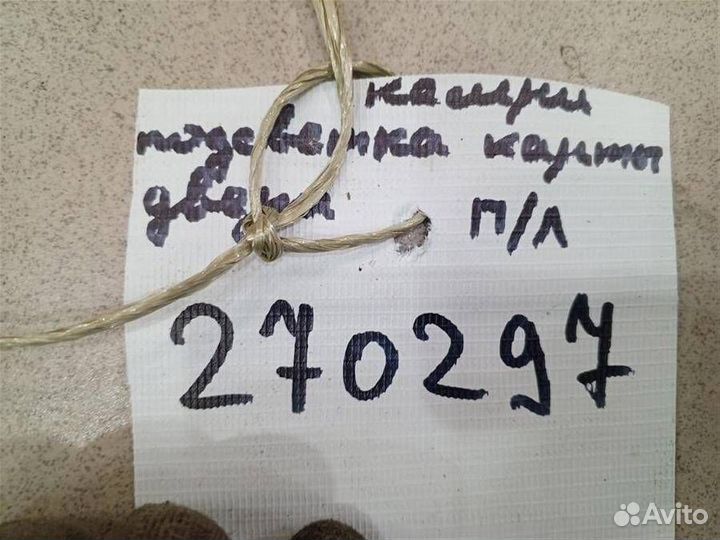 камры
подсветка карты
двери п/л
270297
Avito